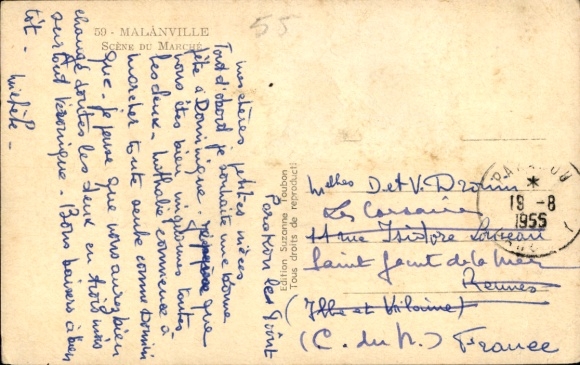 55
59 - MALANVILLE
SCÈNE DU MARCHÉ
Parakou les Août
mes chères petites nièces
Tout d'abord je souhaite une bonne
fête à Dominique. J'espère que
vous êtes bien mignonnes toutes
les deux. Nathalie commence à
marcher toute seule comme
que. je pense que vous aurez bien
changé toutes les deux en trois mois
surtout Véronique. Bons baisers à bien
tôt.
Edition Suzanne Toubon
Tous droits de reproducti
PARAKOU
18 - 8
1955
Melles D et V. Drouin
Les Corsaires
11 rue Isidore
Saint Jacut de la Mer
Rennes
(Ille et Vilaine)
(C. du N.) France